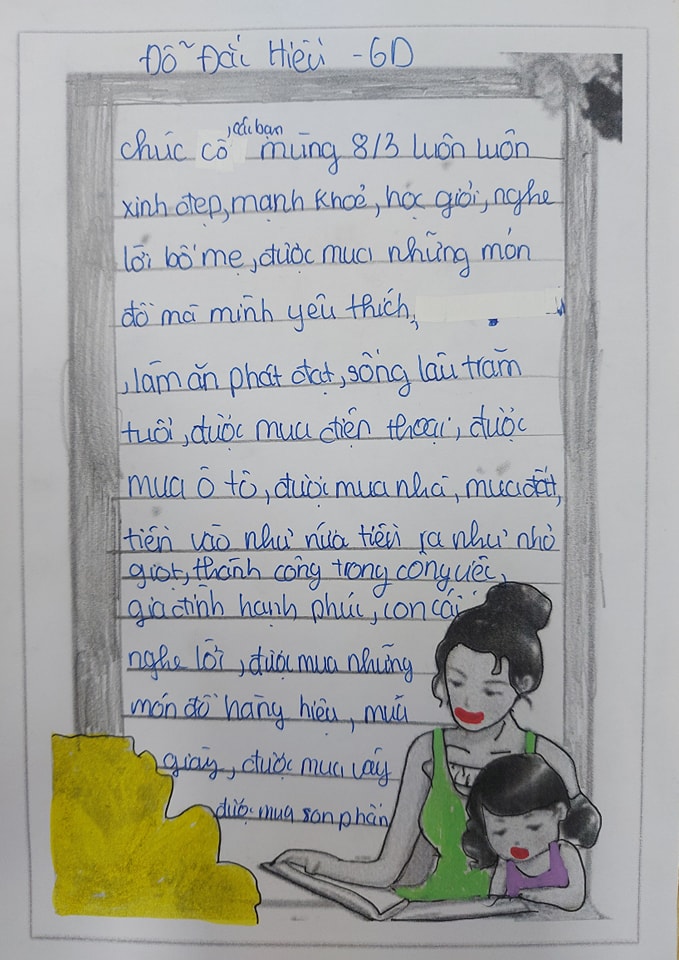 Đỗ Đắc Hiếu - 6D
chúc cô, các bạn mừng 8/3 luôn luôn
xinh đẹp, mạnh khoẻ, học giỏi, nghe
lời bố mẹ, được mua những món
đồ mà mình yêu thích,
, làm ăn phát đạt, sống lâu trăm
tuổi, được mua điện thoại, được
mua ô tô, được mua nhà, mua đất,
tiền vào như nứa tiền ra như nhỏ
giọt, thành công trong công việc,
gia đình hạnh phúc, con cái
nghe lời, được mua những
món đồ hàng hiệu, muă
giày, được mua váy
được mua son phấn